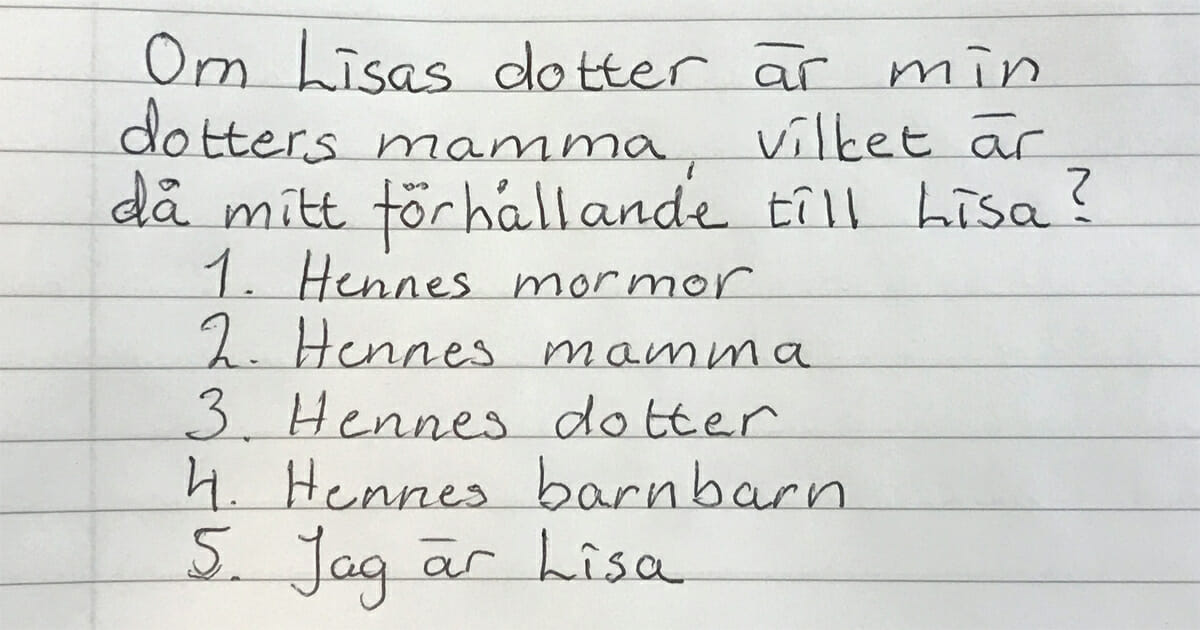 Om Lisas dotter är min
dotters mamma, vilket är
då mitt förhållande till Lisa?
1. Hennes mormor
2. Hennes mamma
3. Hennes dotter
4. Hennes barnbarn
5. Jag är Lisa